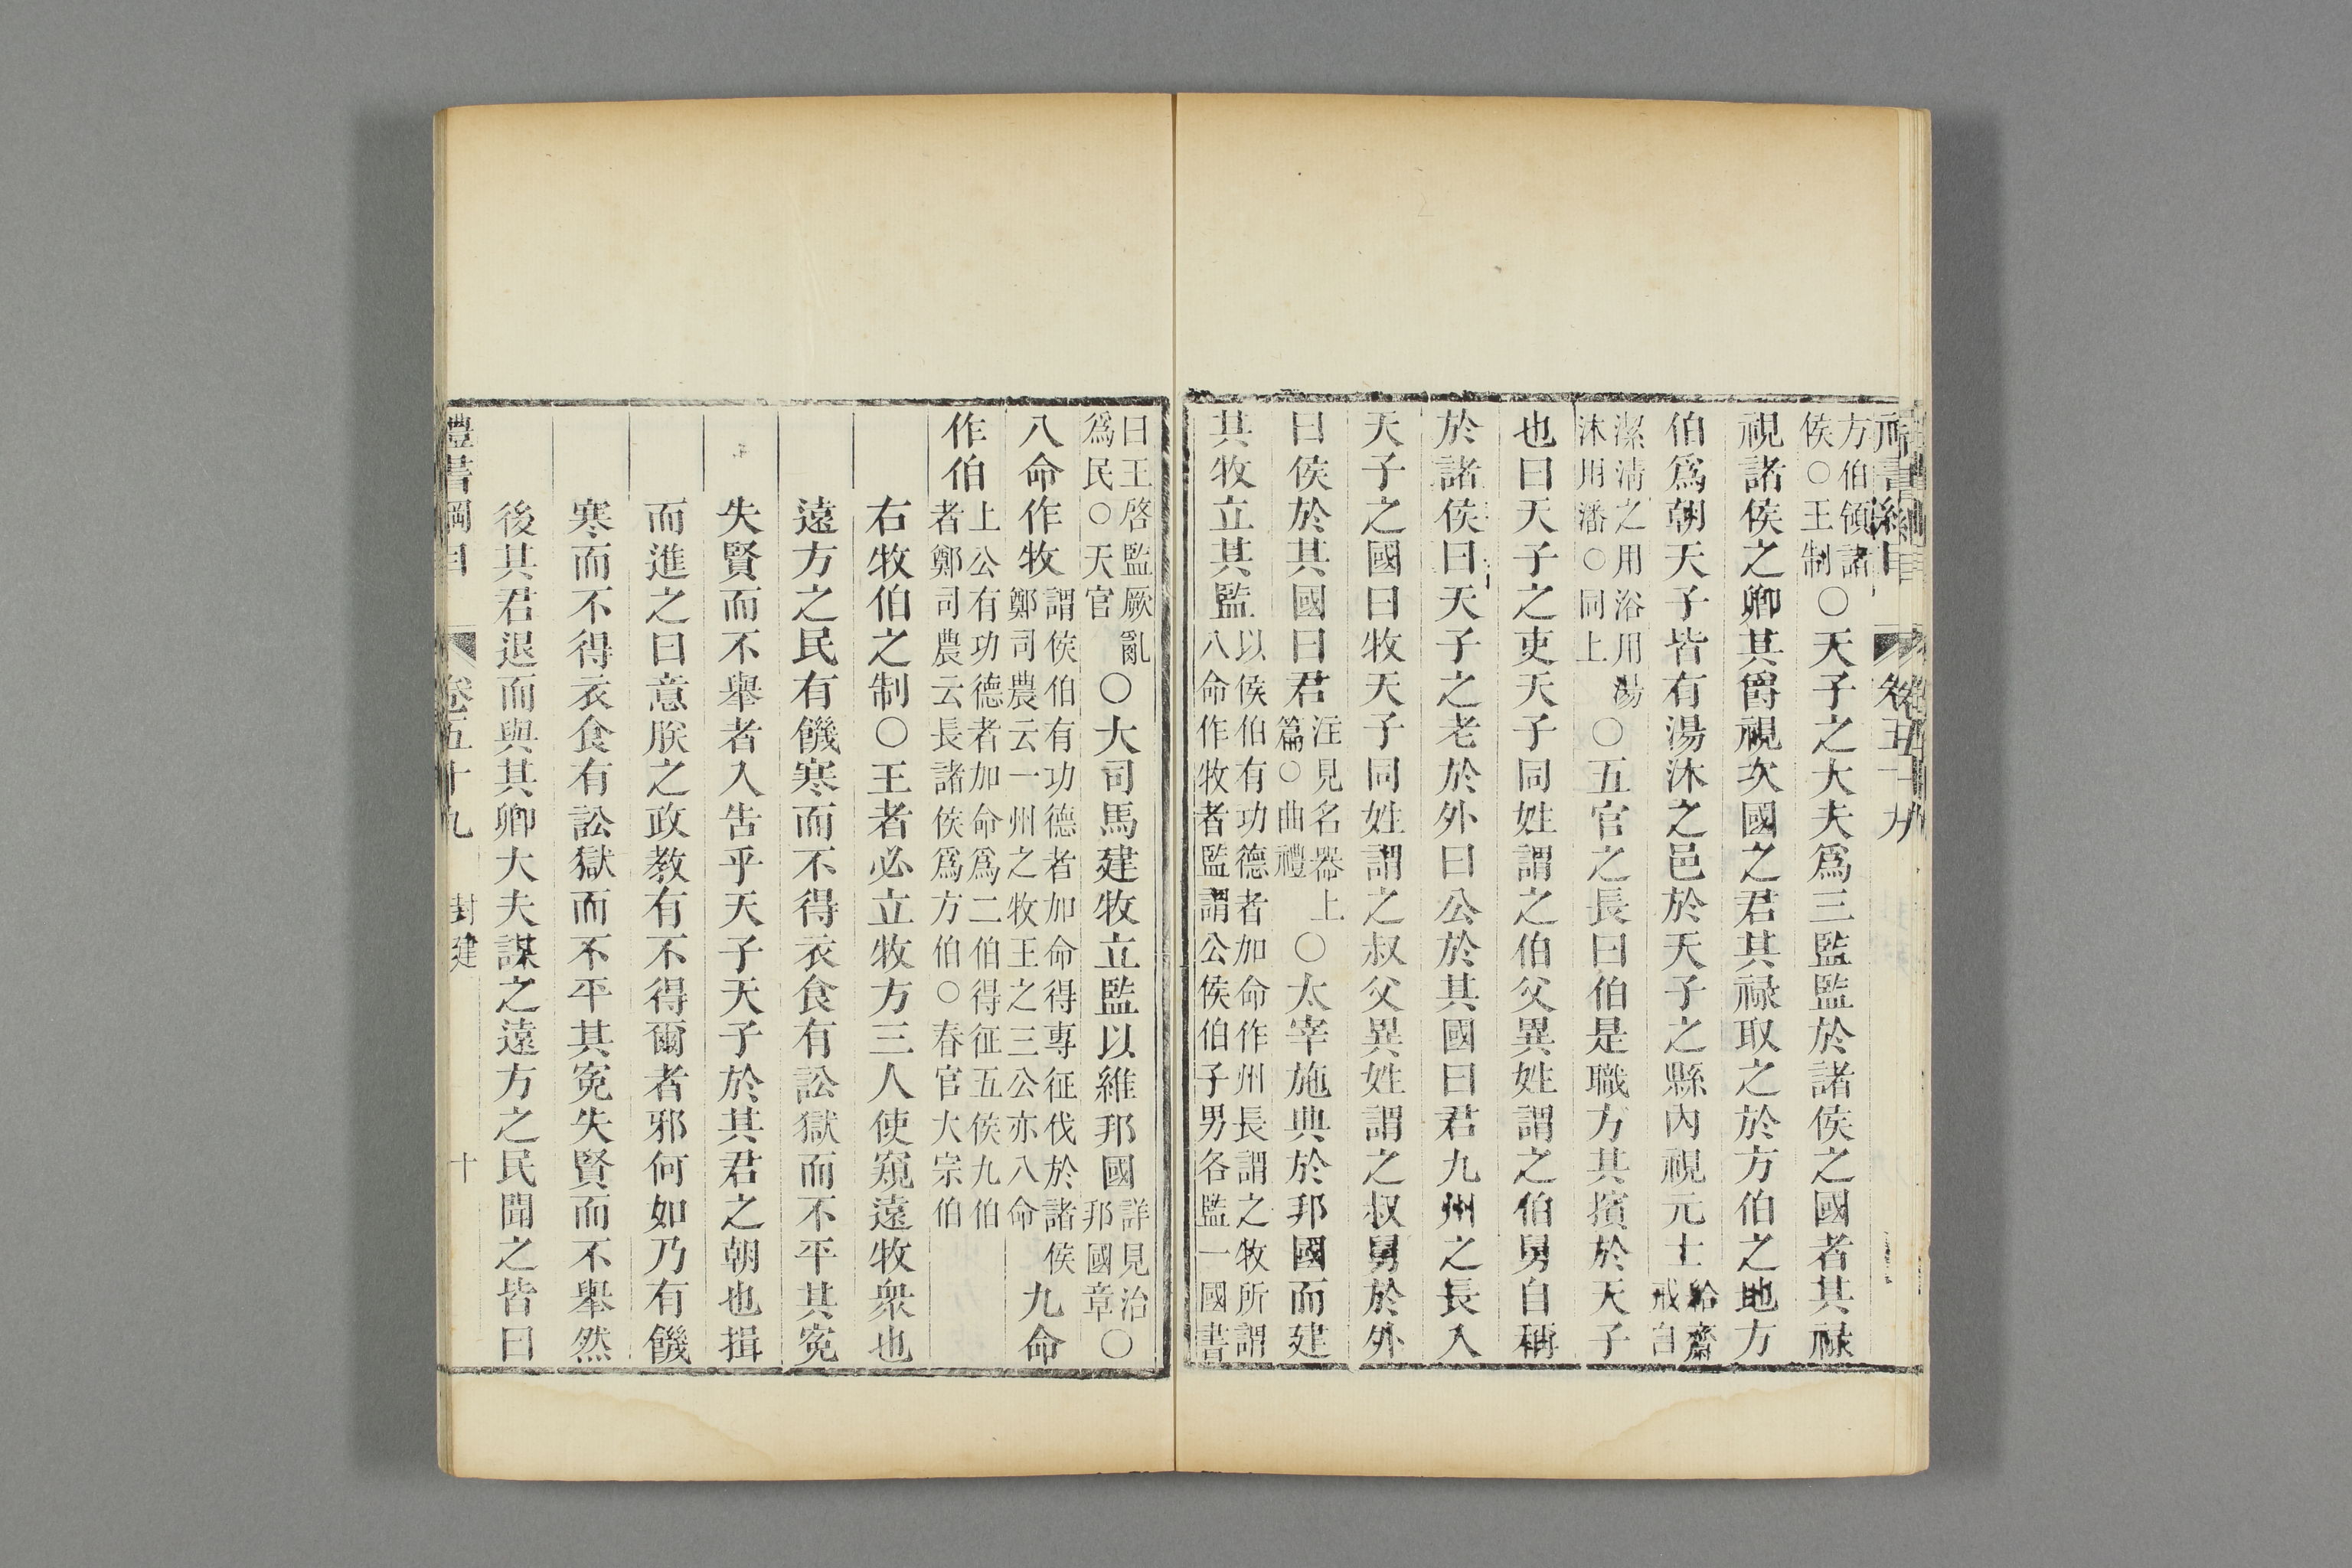 方伯領諸侯○王制○天子之大夫爲三監監於諸侯之國者其祿
視諸侯之卿其爵視次國之君其祿取之於方伯之地方
伯爲朝天子皆有湯沐之邑於天子之縣內視元士給齋戒自
潔淸之用浴用湯沐用潘○同上○五官之長曰伯是職方其擯於天子
也曰天子之吏天子同姓謂之伯父異姓謂之伯舅自稱
於諸侯曰天子之老於外曰公於其國曰君九州之長入
天子之國曰牧天子同姓謂之叔父異姓謂之叔舅於外
曰侯於其國曰君注見名器上篇○曲禮○太宰施典於邦國而建
其牧立其監以侯伯有功德者加命作州長謂之牧所謂八命作牧者監謂公侯伯子男各監一國書
曰王啓監厥亂爲民○天官○大司馬建牧立監以維邦國詳見治邦國章○
八命作牧謂侯伯有功德者加命得專征伐於諸侯鄭司農云一州之牧王之三公亦八命九命
作伯上公有功德者加命爲二伯得征五侯九伯者鄭司農云長諸侯爲方伯○春官大宗伯
右牧伯之制○王者必立牧方三人使窺遠牧衆也
遠方之民有饑寒而不得衣食有訟獄而不平其寃
失賢而不舉者入告乎天子天子於其君之朝也揖
而進之曰意朕之政教有不得爾者邪何如乃有饑
寒而不得衣食有訟獄而不平其寃失賢而不舉然
後其君退而與其卿大夫謀之遠方之民聞之皆曰
禮書綱目 卷五十九 封建 十